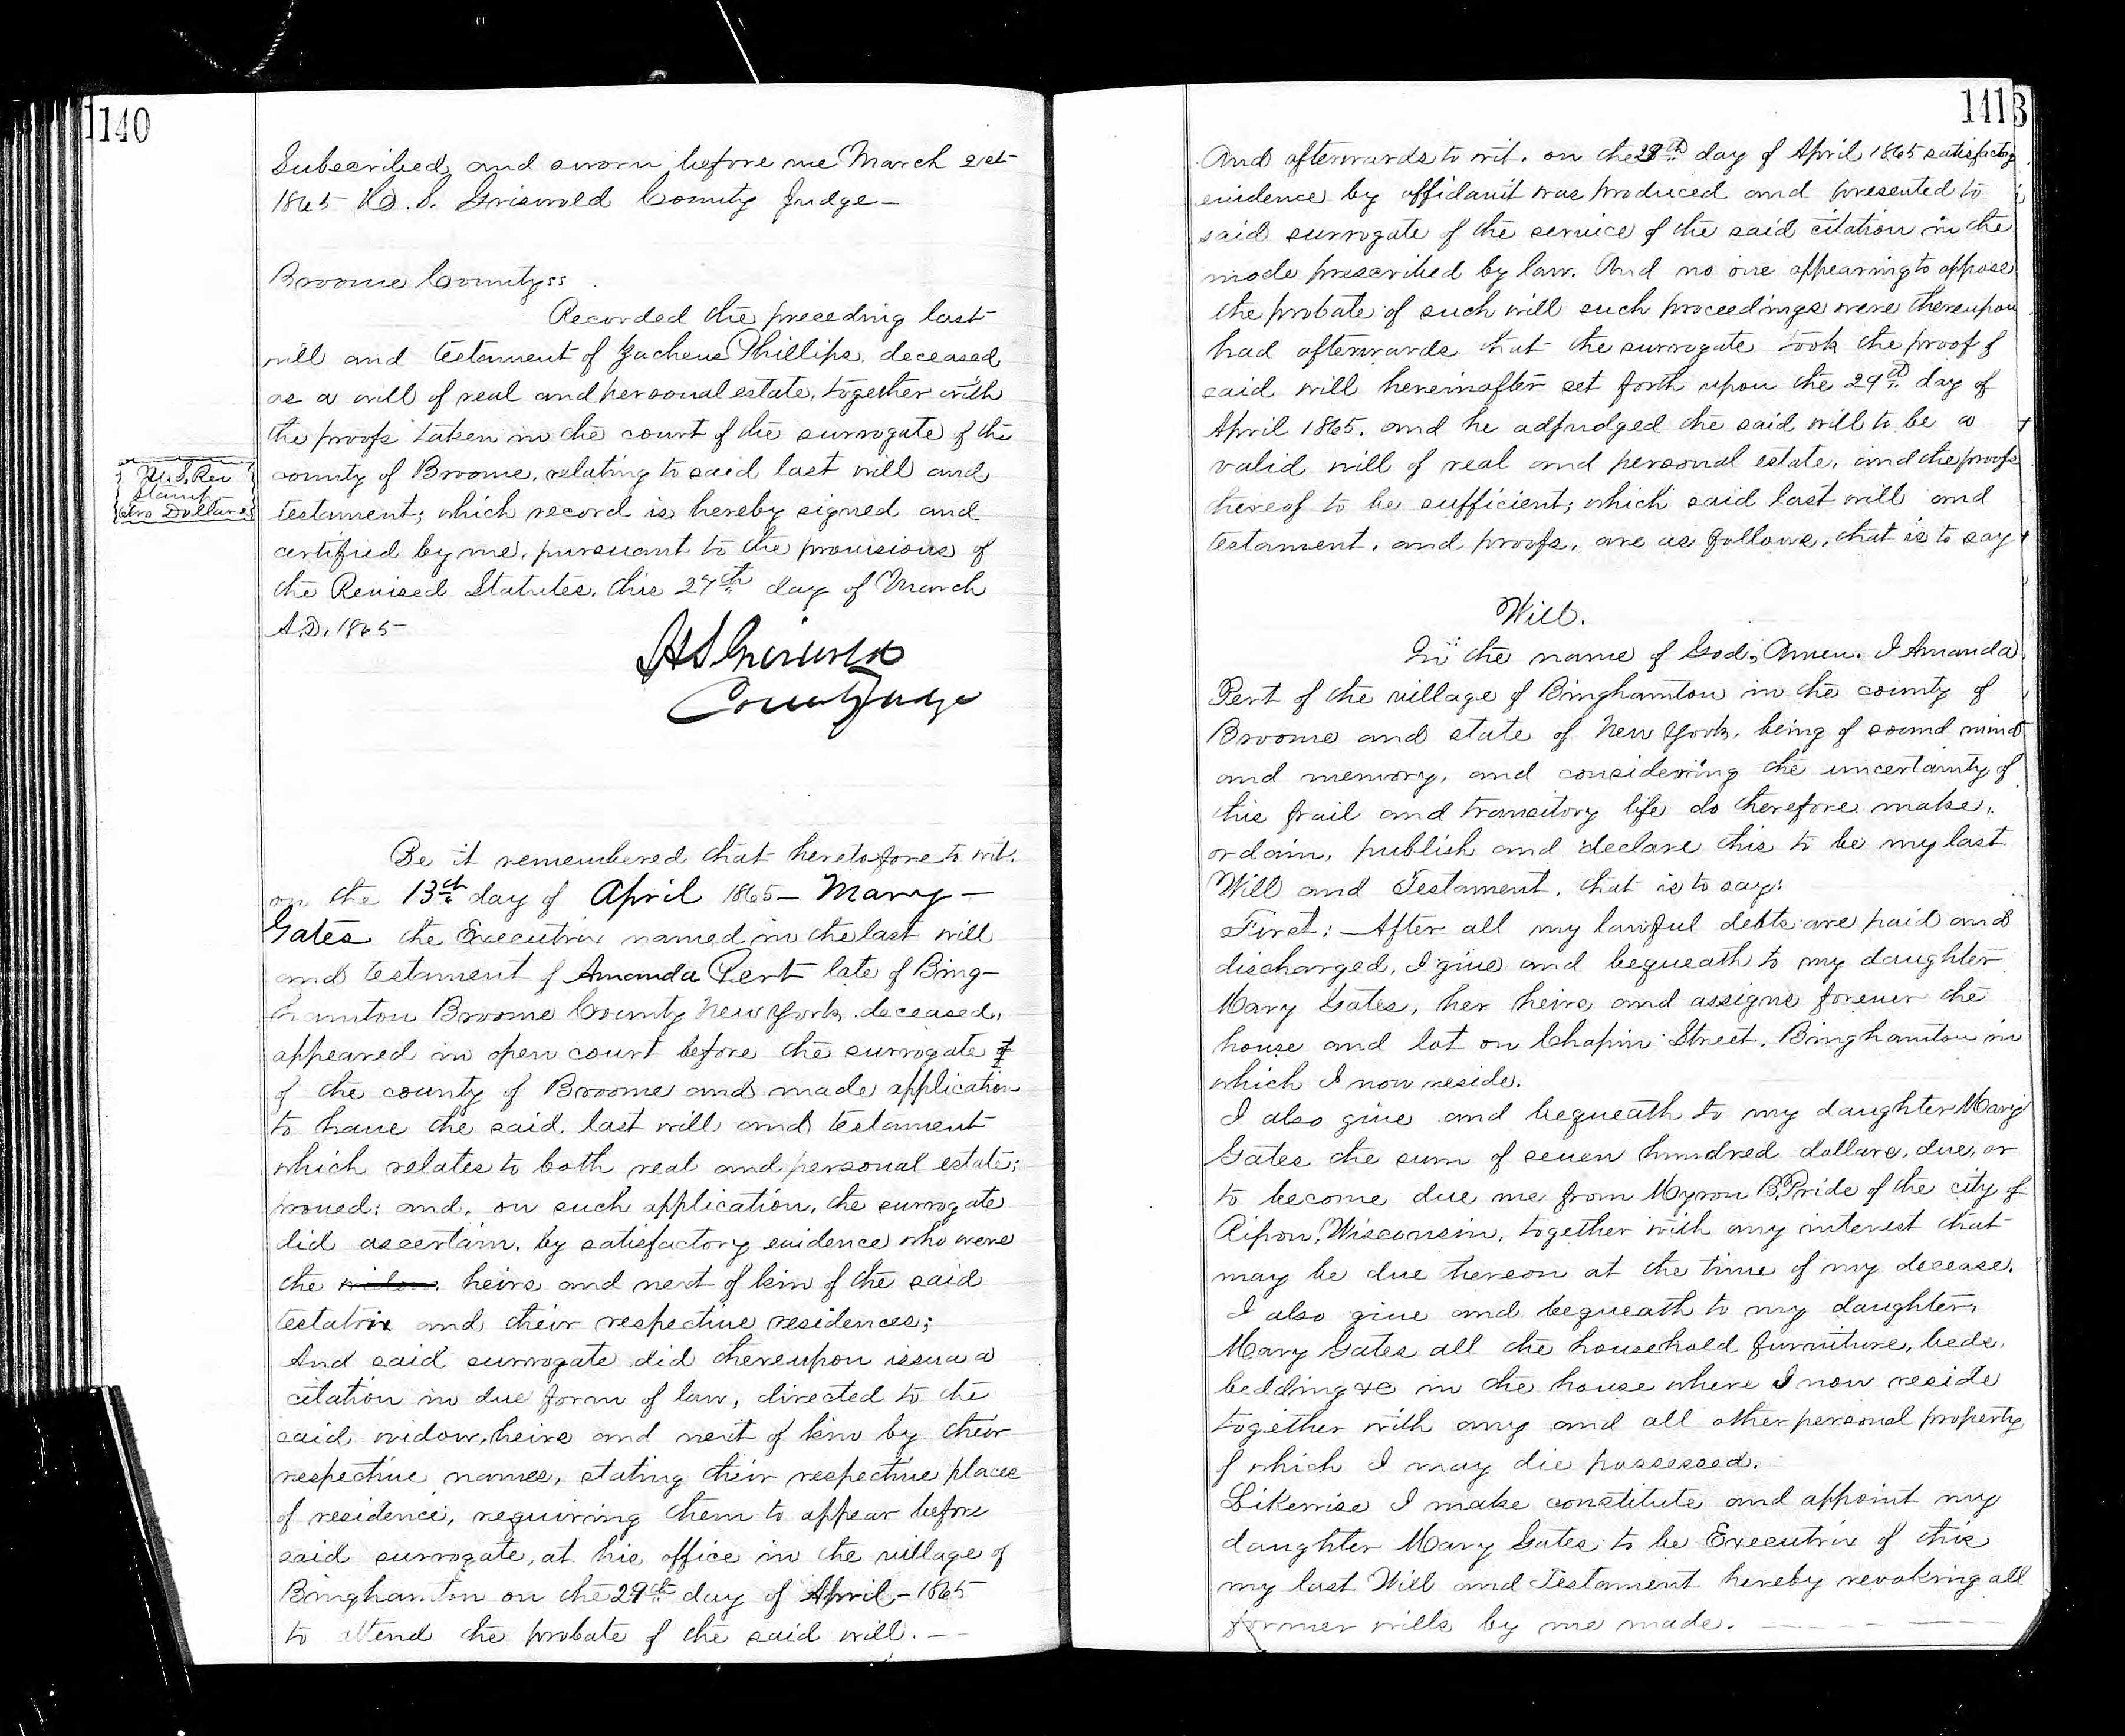 1140
Subscribed and sworn before me March 21st
1865 H. S. Griswold County Judge—
Broome County ss
Recorded the preceding last
will and testament of Zacheus Phillips, deceased
as a will of real and personal estate, together with
the proofs taken in the court of the surrogate of the
county of Broome, relating to said last will and
testament; which record is hereby signed and
certified by me, pursuant to the provisions of
the Revised Statutes, this 27th day of March
A.D. 1865
U.S. Rev
Stamp
two Dollars
H S Griswold
County Judge
Be it remembered that heretofore to wit.
on the 13th day of April 1865— Mary—
Gates the Executrix named in the last will
and testament of Amanda Pert late of Bing-
hamton Broome County New York deceased,
appeared in open court before the surrogate of
of the county of Broome and made application
to have the said last will and testament
which relates to both real and personal estate;
proved: and, on such application, the surrogate
did ascertain, by satisfactory evidence who were
the widow, heirs and next of kin of the said
testatrix and their respective residences;
And said surrogate did thereupon issue a
citation in due form of law, directed to the
said widow, heirs and next of kin by their
respective names, stating their respective places
of residence, requiring them to appear before
said surrogate, at his office in the village of
Binghamton on the 29th day of April— 1865
to attend the probate of the said will.—
1141
And afterwards to wit. on the 29th day of April 1865 satisfactory
evidence by affidavit was produced and presented to
said surrogate of the service of the said citation in the
mode prescribed by law. And no one appearing to oppose
the probate of such will such proceedings were thereupon
had afterwards that the surrogate took the proof of
said will hereinafter set forth upon the 29th day of
April 1865. and he adjudged the said will to be a
valid will of real and personal estate, and the proofs
thereof to be sufficient; which said last will and
testament, and proofs, are as follows, that is to say
Will.
In the name of God, Amen. I Amanda
Pert of the village of Binghamton in the county of
Broome and state of New York, being of sound mind
and memory, and considering the uncertainty of
this frail and transitory life do therefore make,
ordain, publish and declare this to be my last
Will and Testament, that is to say:
First: — After all my lawful debts are paid and
discharged, I give and bequeath to my daughter
Mary Gates, her heirs and assigns forever the
house and lot on Chapin Street, Binghamton in
which I now reside.
I also give and bequeath to my daughter Mary
Gates the sum of seven hundred dollars, due, or
to become due me from Myron B. Pride of the city of
Ripon, Wisconsin, together with any interest that
may be due thereon at the time of my decease.
I also give and bequeath to my daughter,
Mary Gates all the household furniture, beds,
bedding &c in the house where I now reside
together with any and all other personal property
of which I may die possessed.
Likewise I make constitute and appoint my
daughter Mary Gates to be Executrix of this
my last Will and Testament hereby revoking all
former wills by me made.